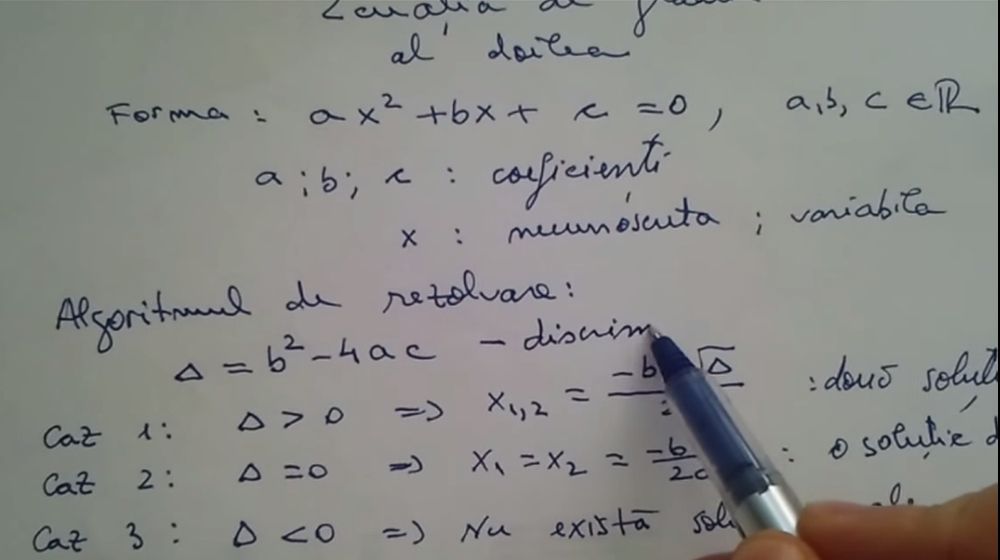 Ecuatia de
al doilea
Forma : ax² + bx + c = 0 , a, b, c ∈ ℝ
a ; b ; c : coeficienti
x : necunoscuta ; variabila
Algoritmul de rezolvare :
Δ = b² - 4ac - discrim
Caz 1 : Δ > 0 => x₁,₂ = -b √Δ : două
Caz 2 : Δ = 0 => x₁ = x₂ = -b/2a : o soluție
Caz 3 : Δ < 0 => Nu există